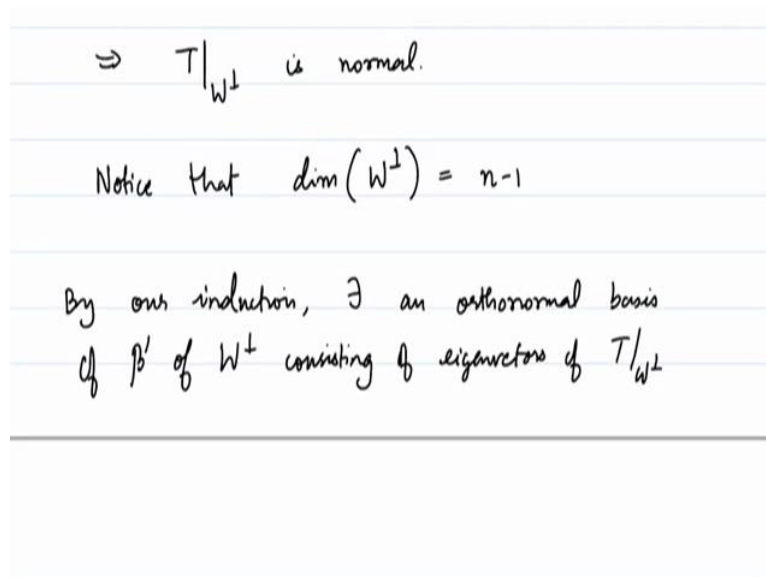 ⇒ T|_{W^⊥} is normal.
Notice that dim(W^⊥) = n-1
By our induction, ∃ an orthonormal basis
of β' of W^⊥ consisting of eigenvectors of T|_{W^⊥}